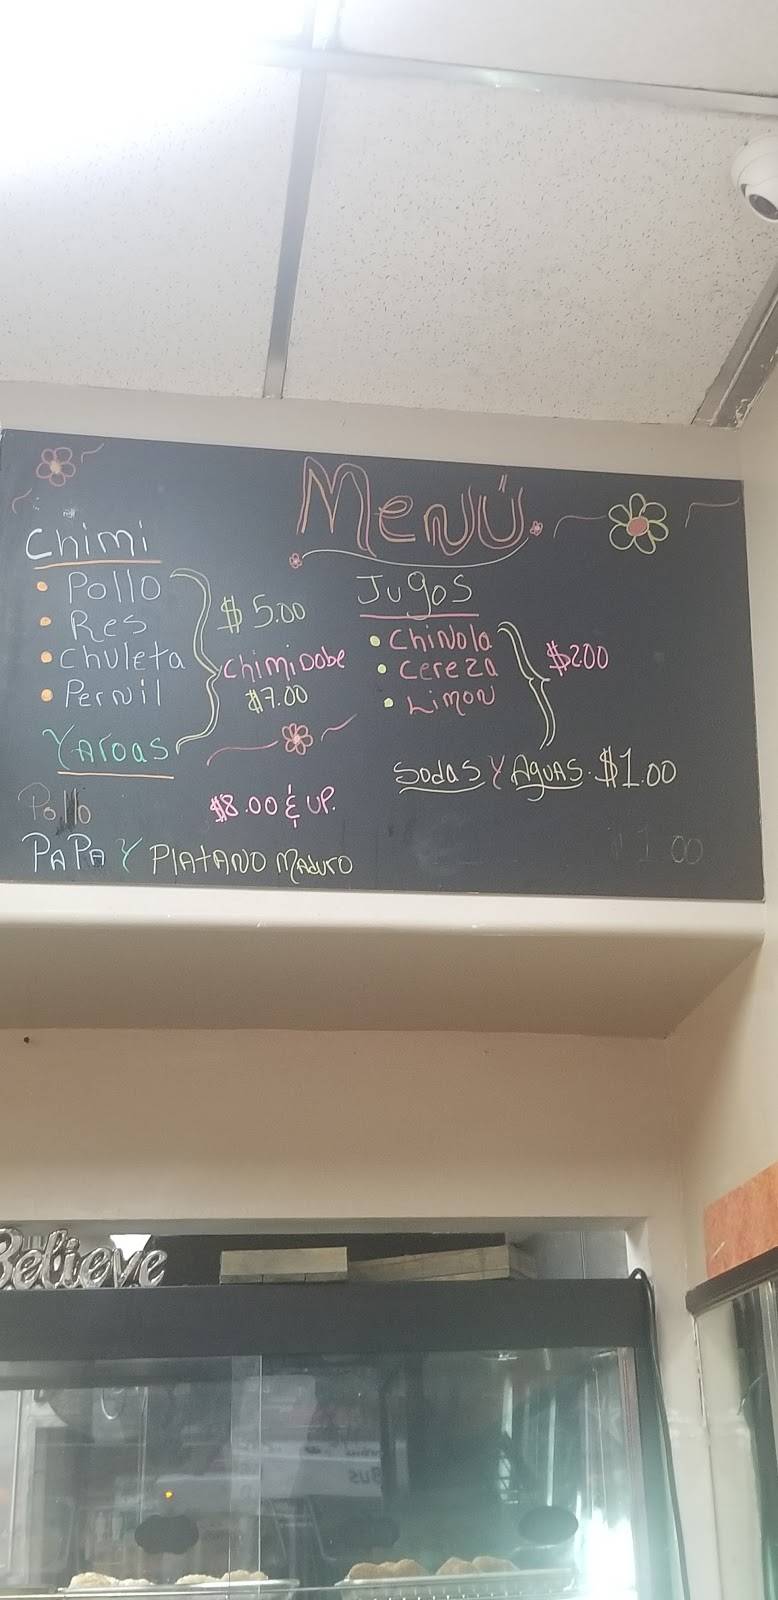 Menú
Chimi
• Pollo
• Res
• Chuleta
• Pernil
$5.00
Chimi Dobe
$7.00
Yaroas
Pollo
$8.00 & UP.
PAPA Y PlATANO MADuro
Jugos
• Chinola
• Cereza
• Limon
$200
Sodas Y Aguas. $1.00
1.00
Believe